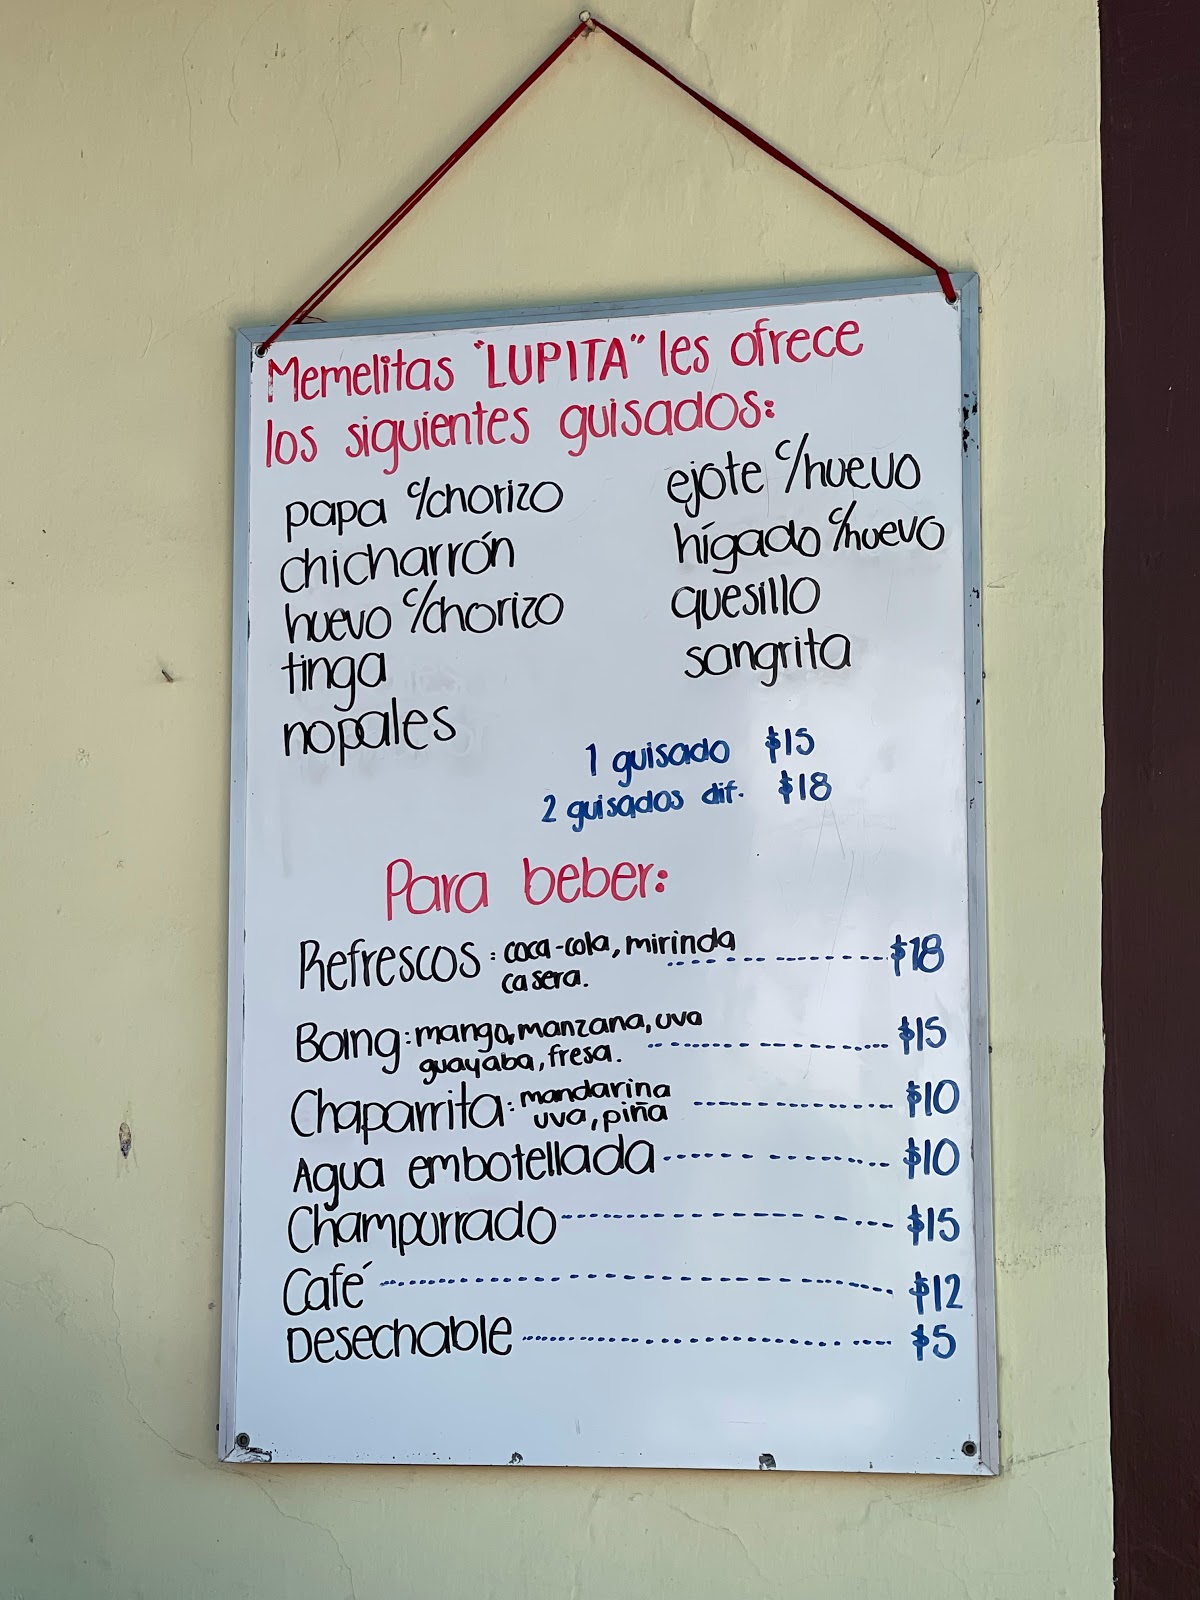 Memelitas "LUPITA" les ofrece
los siguientes guisados:
papa c/chorizo
chicharrón
huevo c/chorizo
tinga
nopales
ejote c/huevo
hígado c/huevo
quesillo
sangrita
1 guisado $15
2 guisados dif. $18
Para beber:
Refrescos: coca-cola, mirinda $18
casera.
Boing: mango, manzana, uva $15
guayaba, fresa.
Chaparrita: mandarina $10
uva, piña
Agua embotellada $10
Champurrado $15
Café $12
Desechable $5